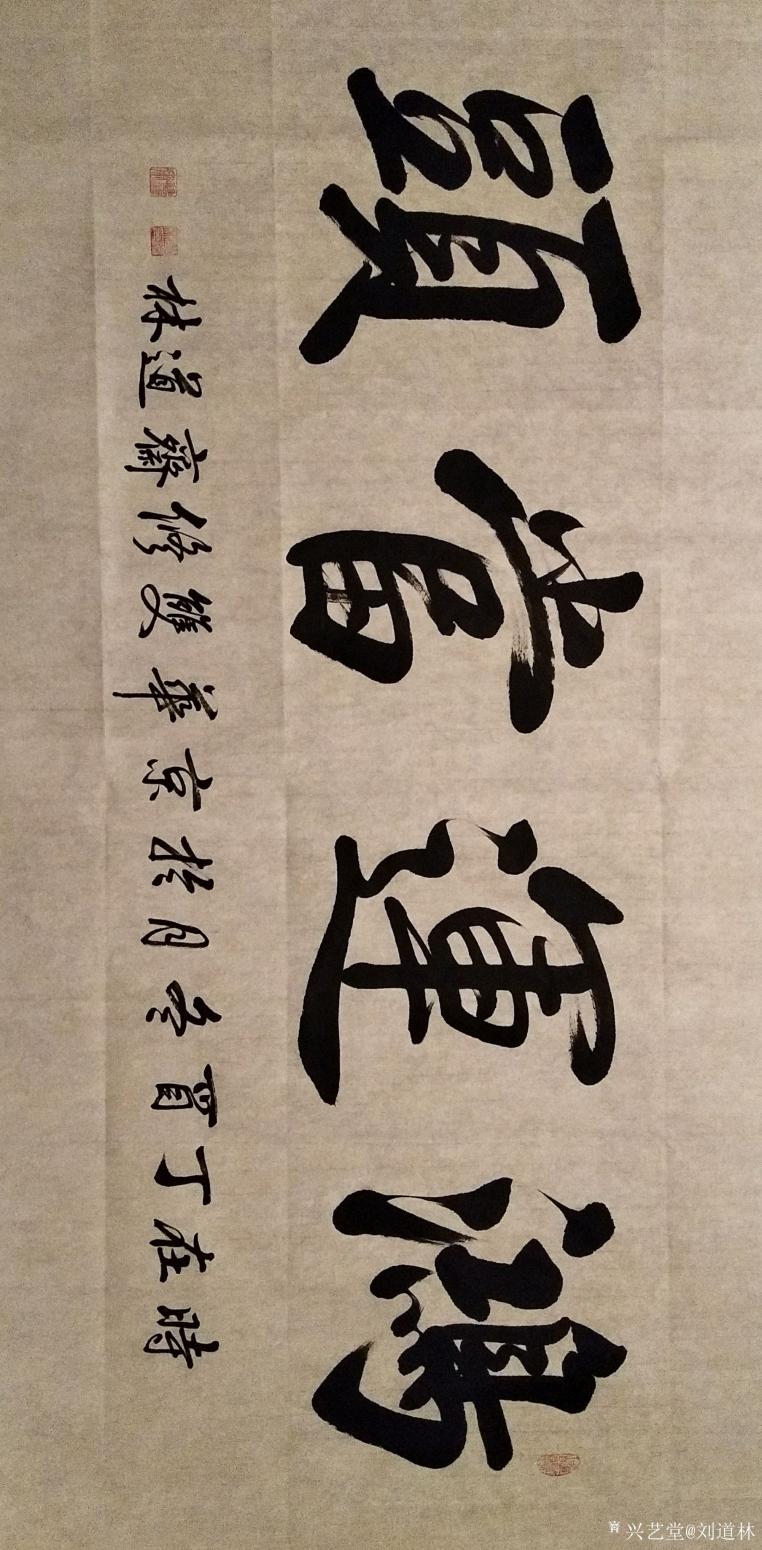 鴻運當頭
時在丁酉冬月於京華雙修齋道林
兴艺堂@刘道林